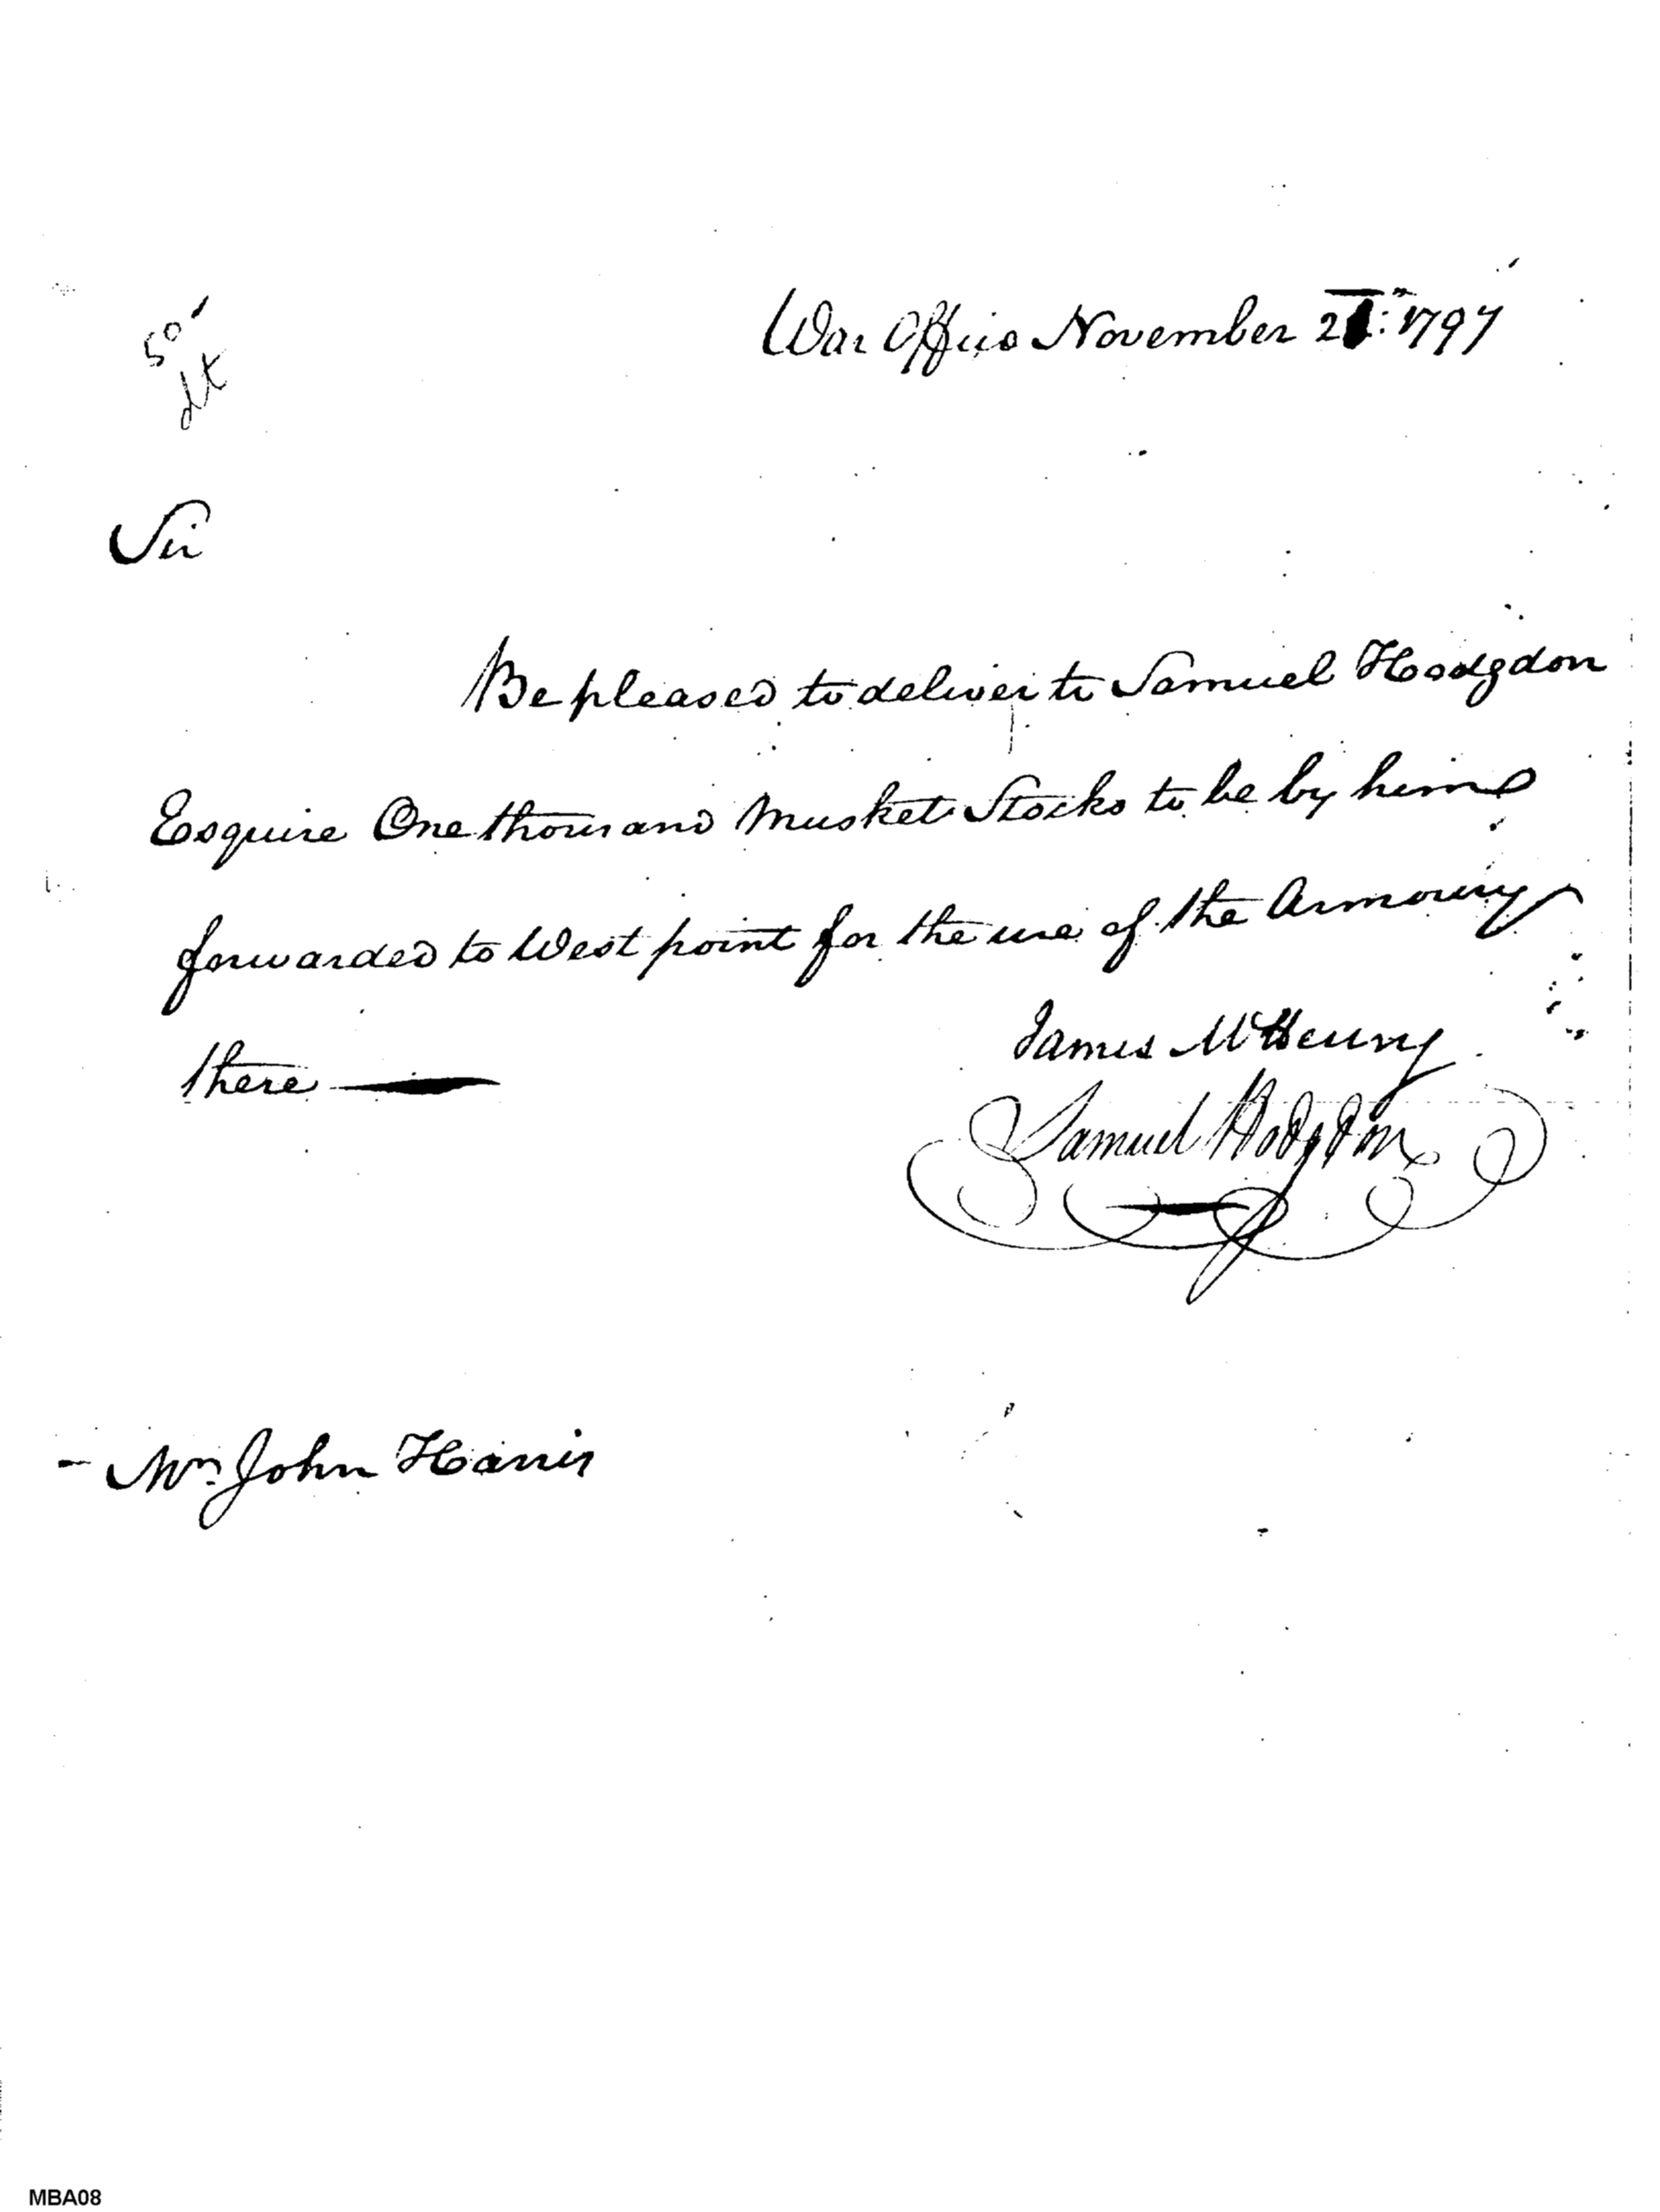 War Office November 21: 1797
Sir
Be pleased to deliver to Samuel Hodgdon
Esquire One thousand Musket Stocks to be by him
forwarded to West point for the use of the Armoury
there
James McHenry
Samuel Hodgdon
Mr. John Harris
MBA08